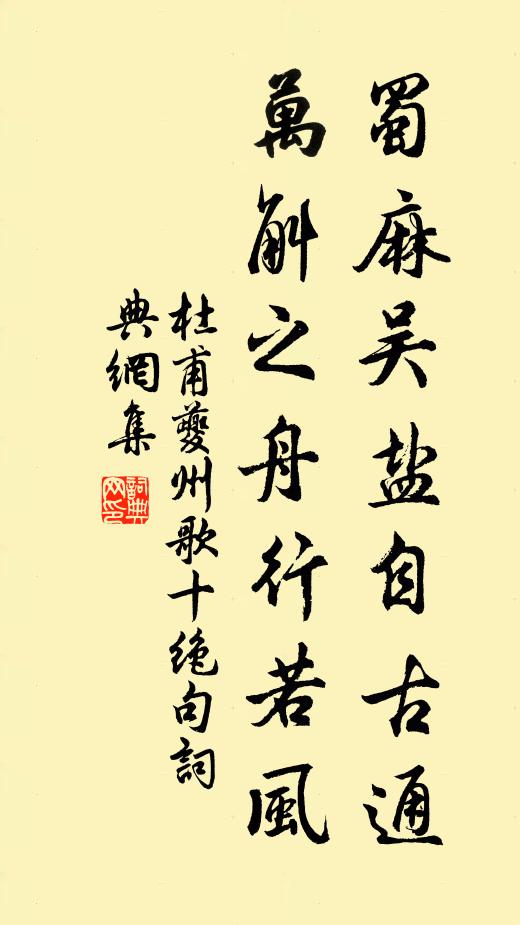 蜀麻吴盐自古通
萬斛之舟行若風
杜甫夔州歌十絶句詞
典網集
詞典网印